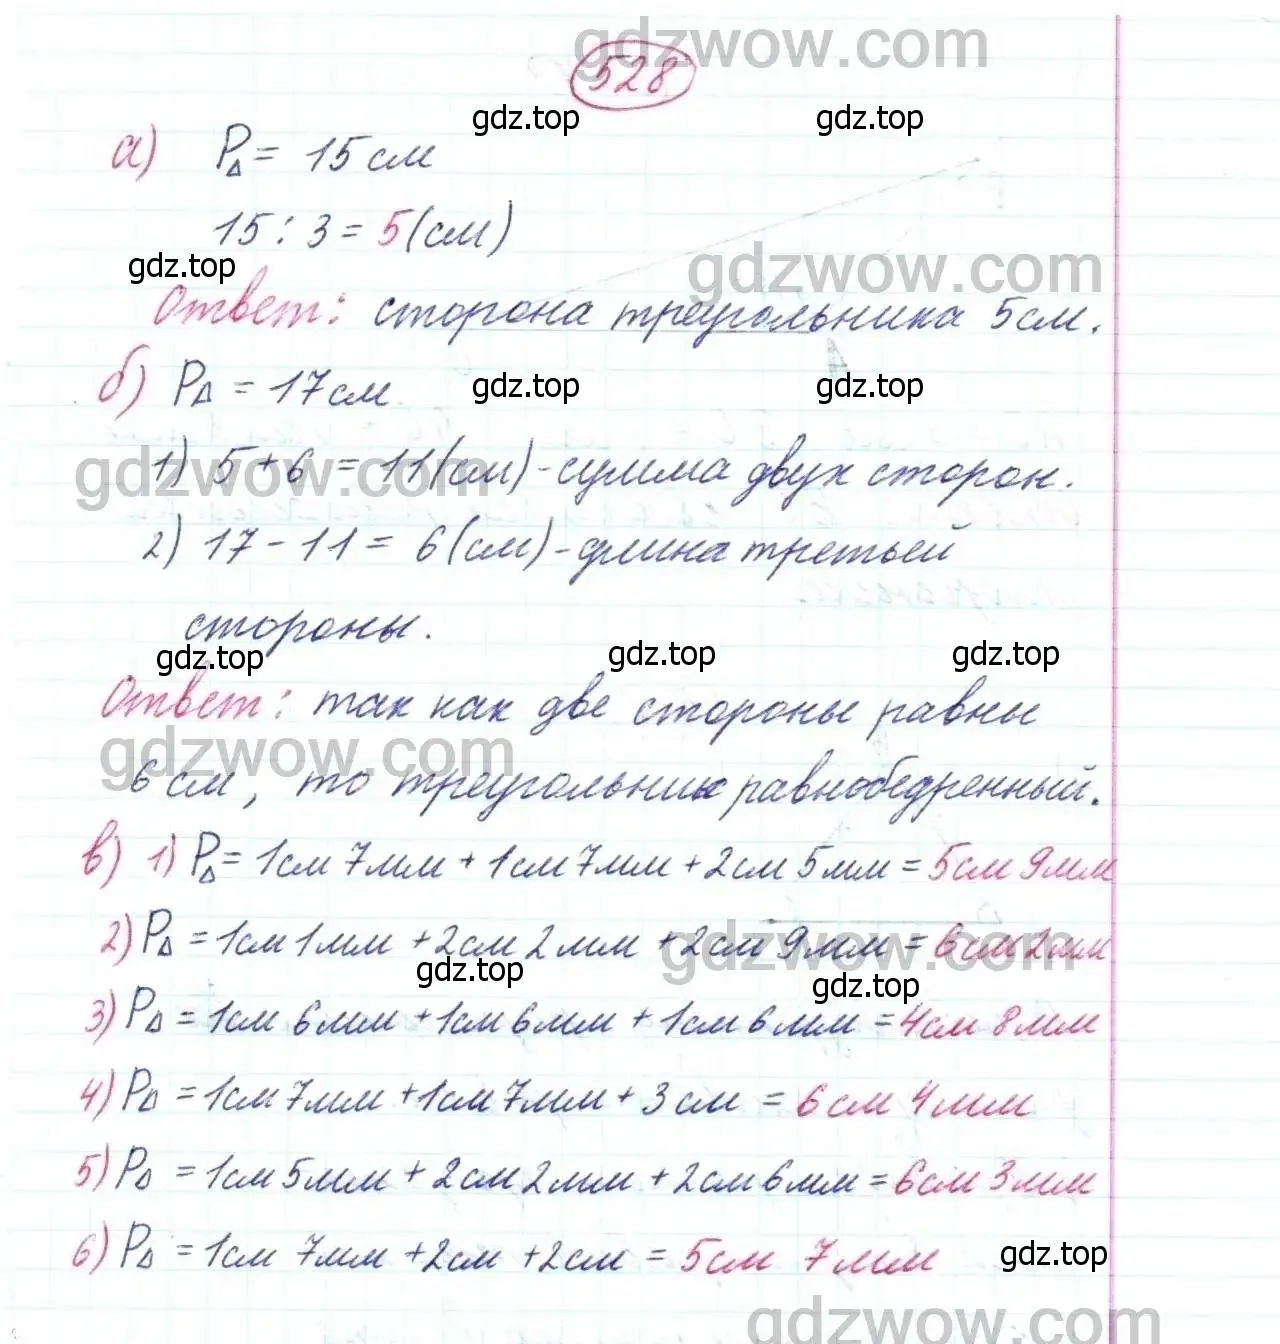 gdzwow.com
528
gdz.top gdz.top
а) P△ = 15 см
15 : 3 = 5 (см)
gdz.top gdzwow.com
Ответ: сторона треугольника 5 см.
б) P△ = 17 см gdz.top gdz.top
1) 5 + 6 = 11 (см) - сумма двух сторон.
gdzwow.com
2) 17 - 11 = 6 (см) - длина третьей
стороны.
gdz.top gdz.top gdz.top
Ответ: так как две стороны равны
gdzwow.com
6 см, то треугольник равнобедренный.
в) 1) P△ = 1 см 7 мм + 1 см 7 мм + 2 см 5 мм = 5 см 9 мм
2) P△ = 1 см 1 мм + 2 см 2 мм + 2 см 9 мм = 6 см 2 мм
gdzwow.com
gdz.top gdz.top
3) P△ = 1 см 6 мм + 1 см 6 мм + 1 см 6 мм = 4 см 8 мм
4) P△ = 1 см 7 мм + 1 см 7 мм + 3 см = 6 см 4 мм
5) P△ = 1 см 5 мм + 2 см 2 мм + 2 см 6 мм = 6 см 3 мм
6) P△ = 1 см 7 мм + 2 см + 2 см = 5 см 7 мм
gdz.top
gdzwow.com